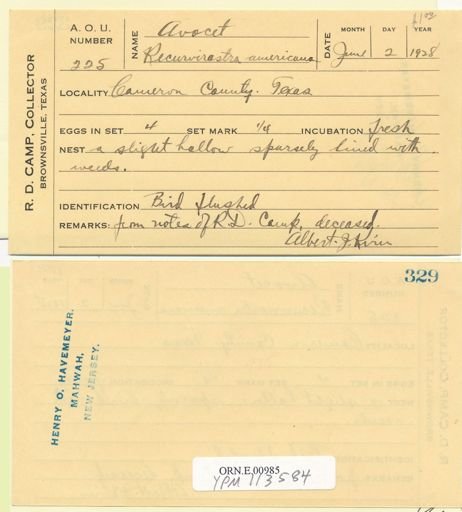 £1.02
A. O. U. NUMBER
225
NAME Avocet
Recurvirostra americana
DATE MONTH DAY YEAR
June 2 1928
R. D. CAMP, COLLECTOR
BROWNSVILLE, TEXAS
LOCALITY Cameron County. Texas
EGGS IN SET 4 SET MARK 1/4 INCUBATION Fresh
NEST a slight hollow sparsely lined with
weeds.
IDENTIFICATION Bird flushed
REMARKS: from notes of R.D. Camp, deceased.
Albert J.
329
HENRY O. HAVEMEYER.
MAHWAH,
NEW JERSEY.
ORN.E.00985
YPM 113584